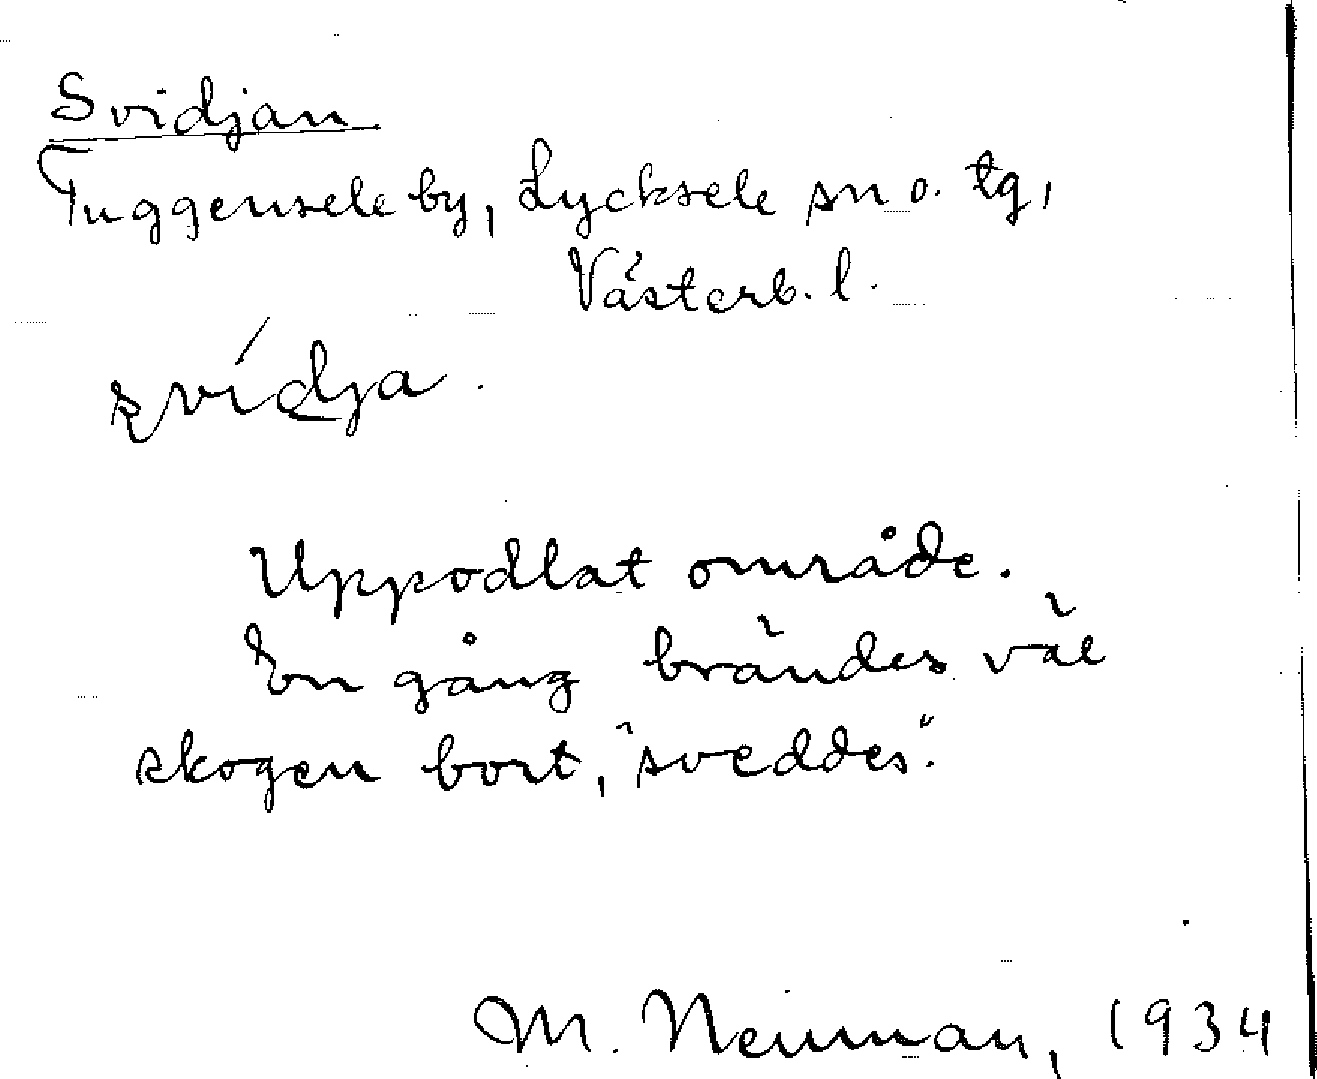 Svidjan
Tuggensele by, Lycksele sn o. tg,
Västerb. l.
svídja.
Uppodlat område.
En gång brändes väl
skogen bort, "sveddes".
M. Neiman, 1934